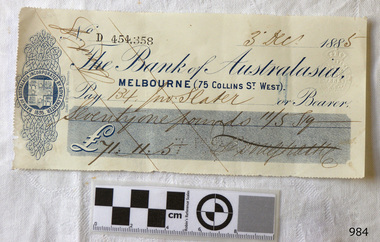 No D 454,358
3 Dec. 1885
The Bank of Australasia,
MELBOURNE (75 COLLINS ST WEST).
Pay Jno. Slater or Bearer
Seventy one pounds 11/5
£ 71.11.5
cm
984